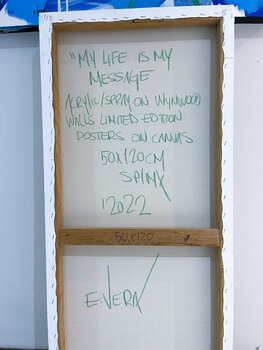 "MY LIFE IS MY
MESSAGE
ACRYLIC/SPRAY ON WYNWOOD
WALLS LIMITED EDITION
POSTERS ON CANVAS
50X120CM
SPINX
'2022
50X120
E.VERA